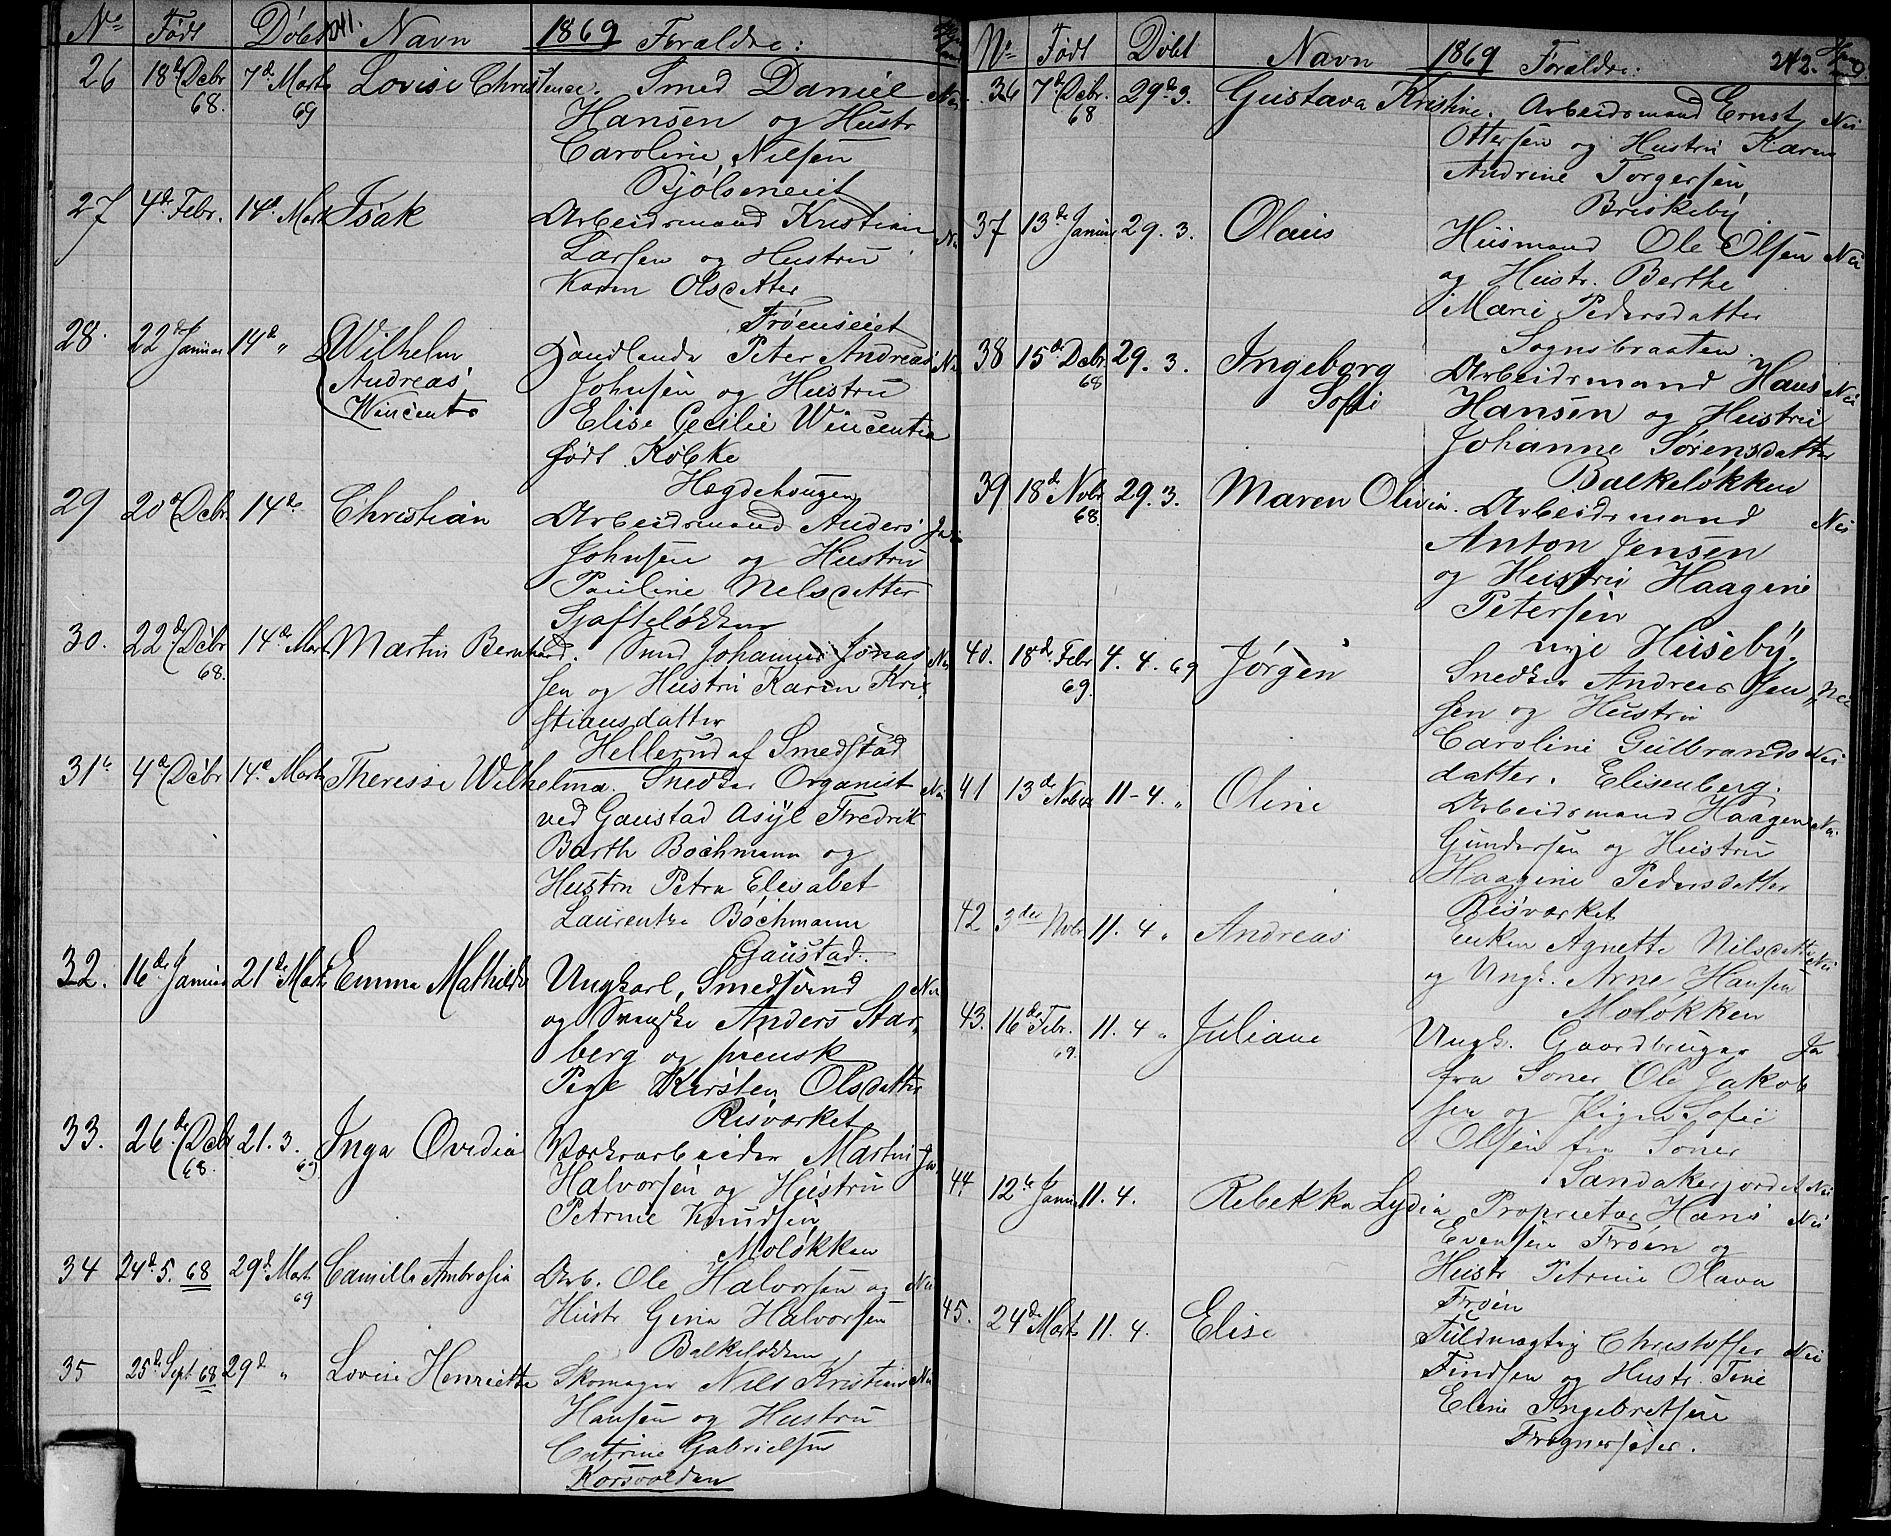 No Født Døbt 241. Navn 1869 Forældre:
26 18de Decbr 68. 7de Marts 69 Lovise Christence. Smed Daniel Nei
Hansen og Hustr
Caroline Nilsen
Bjølseneiet
27 4de Febr. 14de Mart Isak Arbeidsmand Kristian Nei
Larsen og Hustru
Karen Olsdatter
Frøenseiet
28. 22de Januar 14de " Wilhelm Handlende Peter Andreas Nei
Andreas Johnsen og Hustru
Wincents Elise Cecilie Wincentia
født Købke
Hægdehougen
29 20de Decbr. 14de Christian Arbeidsmand Anders Ja
Johnsen og Hustru
Pauline Nelsdatter
Sjafteløkken
30. 22de Decbr 68. 14de Mart Martin Bernhard. Smed Johannes Jonas Nei
sen og Hustru Karen Kri
stiansdatter
Hellerud af Smedstad
31 4de Decbr 14de Marts Theresse Wilhelma. Snedker Organist Nei
ved Gaustad Asyl Fredrik
Barth Bochmann og
Hustru Petra Elesabet
Laurentze Bochmann
Gaustad.
32. 16de Januar 21de Marts Emma Mathilde Ungkarl, Smedsvend Nei
og Svenske Anders Star
berg og
Pige Kirsten Olsdatter
Risværket
33. 26de Decbr 68. 21. 3. 69 Inga Ovedia Værksarbeider Martin Ja
Halvorsen og Hustru
Petrine Knudsen
Moløkken
34 24de 5. 68 29de Mart. 69 Camilla Ambrosia Arb. Ole Halvorsen og Nei
Hustr Gina Halvorsen
Balkeløkken
35 25de Sept. 68 29de " Lovise Henriette Skomager Nils Kristian Nei
Hansen og Hustru
Catrine Gabrielsen
Korsvolden
No Født Døbt Navn 1869 Forældre: 242.
36 7de Decbr. 68 29de 3. Gustava Kristine. Arbeidsmand Ernst Nei
Ottersen og Hustru Karen
Andrine Torgersen
Briskeby
37 13de Januar 29. 3. Olaus Husmand Ole Olsen Nei
og Hustr. Berthe
Marie Pedersdatter
Sognsbraaten
38 15de Decbr 68 29. 3. Ingeborg Arbeidsmand Hans Nei
Sofi Hansen og Hustru
Johanne Sørensdatter
Balkeløkken
39 18de Novbr 68 29. 3. Maren Olivia. Arbeidsmand Nei
Anton Jensen
og Hustru Haagine
Petersen
nye Huseby.
40. 18de Febr 69. 4. 4. 69 Jørgen Snedker Andreas Jen Nei
sen og Hustru
Caroline Gulbrands Nei
datter. Elisenberg.
41 13de Novbr 11-4. " Oline Arbeidsmand Haagen Nei
Gundersen og Hustru
Haagine Pedersdatter
Risværket
42 3die Novbr 11. 4 " Andreas Enken Agnette Nilsdatter Nei
og Ungk. Arne Hansen
Moløkken
43. 16de Febr. 69. 11. 4 " Juliane Ungk. Gaardbruger Ja
fra Soner Ole Jakob
sen og Pigen Sofie
Olsen fra Soner
i Sandakerjordet Nei
44 12te Januar 11. 4. Rebekka Lydia Proprietær Hans Nei
Evensen Frøen og
Hustr Petrine Olava
Frøen
45. 24de Marts 11. 4. Elise Fuldmægtig Christoffer Nei
Findsen og Hustr. Tine
Eline Ingebretsen
Frognersæter.